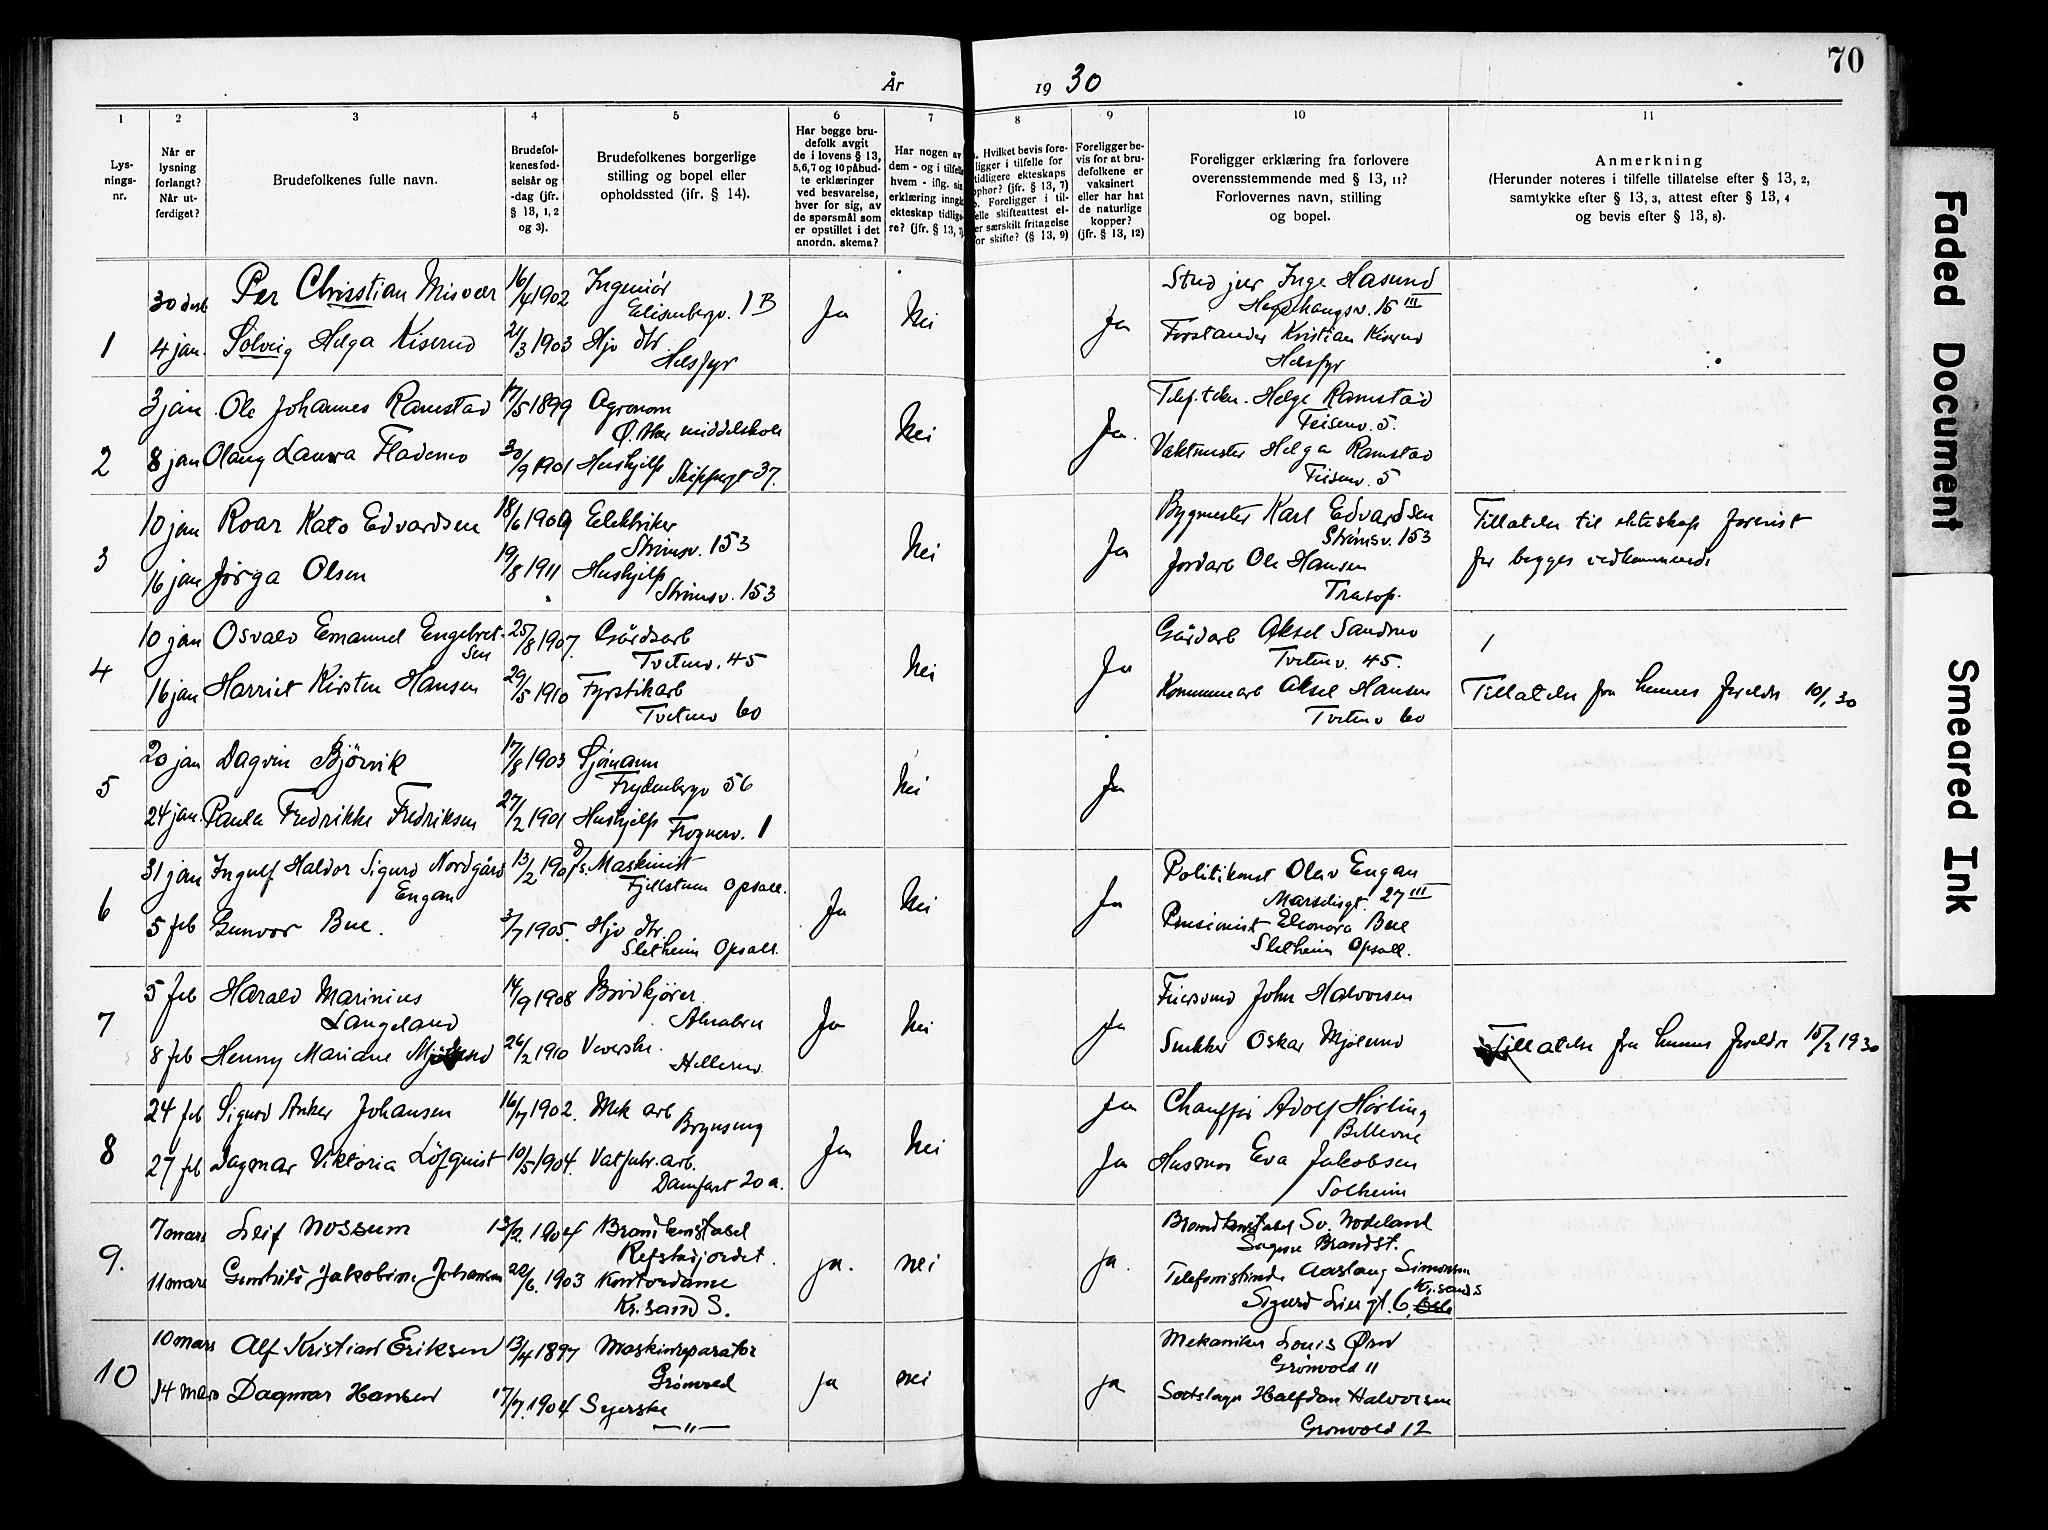 70
År 1930
1 2 3 4 5 6 7 8 9 10 11
Lys-
nings-
nr.
Når er
lysning
forlangt?
Når ut-
ferdiget?
Brudefolkenes fulle navn.
Brudefol-
kenes fød-
selsår og
-dag (jfr.
§ 13, 1, 2
og 3).
Brudefolkenes borgerlige
stilling og bopel eller
opholdssted (jfr. § 14).
Har begge bru-
defolk avgit
de i lovens § 13,
5,6,7 og 10 påbud-
te erklæringer
ved besvarelse,
hver for sig, av
de spørsmål som
er opstillet i det
anordn. skema?
Har nogen av
dem - og i tilfelle
hvem - iflg. sin
erklæring inngå
ekteskap tidlige-
re? (jfr. § 13, 7)
Hvilket bevis fore-
ligger i tilfelle for
tidligere ekteskaps
ophør? (jfr. § 13, 7)
Foreligger i til-
felle skifteattest el-
er særskilt fritagelse
for skifte? (§ 13, 9)
Foreligger be-
vis for at bru-
defolkene er
vaksinert
eller har hat
de naturlige
kopper?
(jfr. § 13, 12)
Foreligger erklæring fra forlovere
overensstemmende med § 13, 11?
Forlovernes navn, stilling
og bopel.
Anmerkning
(Herunder noteres i tilfelle tillatelse efter § 13, 2,
samtykke efter § 13, 3, attest efter § 13, 4
og bevis efter § 13, 8).
1
30 desb Per Christian Misvær 16/4 1902 Ingeniør
Elisenbergv. 1 B
Ja Nei Ja
Stud jur Inge Hasund
Hegdehaugsv. 15 III
4 jan. Solveig Helga Kiserud 21/3 1903 Hjv dtr
Helsfyr
Forstander Kristian Kiserud
Helsfyr
2
3 jan Ole Johannes Ramstad 17/5 1899 Agronom
Ø. Aker middelskole
Nei Ja.
Helge Ramstad
Teisenv. 5.
8 jan Olaug Laura Flademo 30/9 1901 Hushjelp
Skippergt 37.
Vaktmester Helga Ramstad
Teisenv. 5
3
10 jan Roar Kato Edvardsen 18/6 1909 Elektriker
Strømsv. 153
Nei Ja
Bygmester Karl Edvardsen
Strømsv. 153
Tillatelse til ekteskap forevist
16 jan Jørga Olsen 19/8 1911 Hushjelp
Strømsv. 153
Jordarb Ole Hansen
Trasop.
for begges vedkommende
4
10 jan Osvald Emanuel Engebret-
sen 25/8 1907. Gårdsarb
Tvetenv. 45
Nei Ja
Gårdarb Aksel Sandmo
Tvetenv. 45.
16 jan Harriet Kirsten Hansen 29/5 1910 Fyrstikarb
Tvetenv 60
Kommunearb Aksel Hansen
Tvetenv 60
Tillatelse fra hennes foreldre 10/1 30
5
20 jan Dagvin Bjørvik 17/8 1903 Sjømann
Frydenbergv 56
Nei Ja
24 jan. Paula Fredrikke Fredriksen 27/2 1901 Hushjelp
Frognerv. 1
6
31 jan Ingulf Haldor Sigurd Nordgård
Engan 13/2 190 Maskinist
Fjellstuen Opsall.
Ja Nei Ja
Politikonst Olav Engan
Marselisgt. 27 III
5 feb Gunvor Bue. 3/7 1905. Hjv dtr.
Sletheim Opsall.
Pensionist Eleonora Bue
Sletheim Opsall.
7
5 feb Harald Marinius
Langeland 14/9 1908 Brødkjører.
Alnabru
Ja Nei Ja
John Halvorsen
8 feb Henny Mariane Mjølnerud 26/2 1910 Veverske.
Hellerud.
Snekker Oskar
Tillatelse fra hennes foreldre 15/2 1930
8
24 feb Sigurd Anker Johansen 16/7 1902. Mek arb
Brynseng
Ja Nei Ja
Chauffør Adolf Hørling
Bellevue
27 feb Dagmar Viktoria Löfquist 10/5 1904. Vatfabr. arb.
Damfaret 20 a.
Ja
Husmor Eva Jakobsen
Solheim
9.
7 mars Leif Mossum 13/2. 1904 Brandkonstabel
Refstadjordet.
ja. nei ja.
Brandkonstabel Sv. Nodeland
Sagene Brandst.
11 mars Gunhild Jakobine Johansen 22/6. 1903 Kontordame
Kr.sand S.
Telefonistinde Aaslaug Simonsen
Kr.sand S
Sigurd Liens gt. 6, Oslo
10
10 mars Alf Kristian Eriksen 13/4 1897 Maskinreparatør
Grønvold
ja nei ja
Mekaniker Louis Ørud
Grønvold 11
14 mars Dagmar Hansen 17/7. 1904 Syerske
—"—
Halfdan Halvorsen
Grønvold 12
Faded Document
Smeared Ink